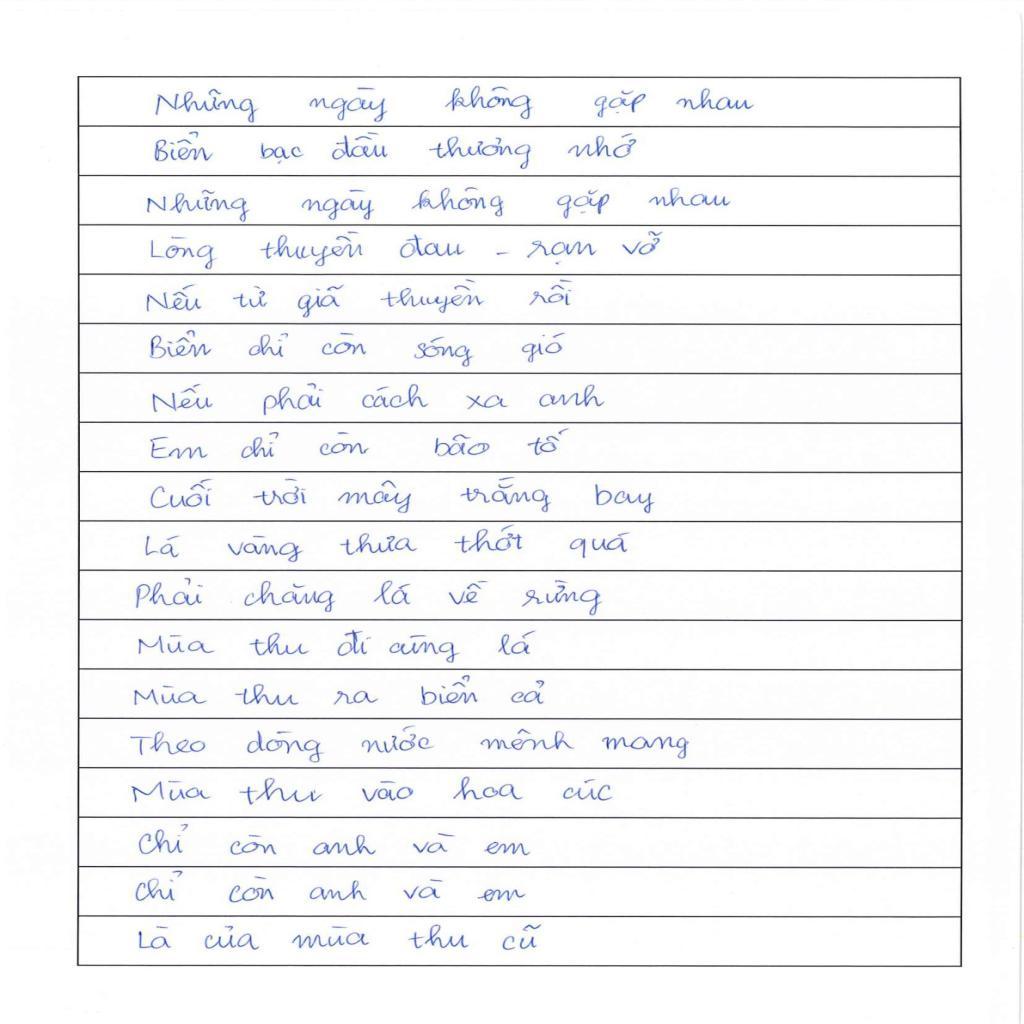 Những ngày không gặp nhau
Biển bạc đầu thương nhớ
Những ngày không gặp nhau
Lòng thuyền đau - rạn vỡ
Nếu từ giã thuyền rồi
Biển chỉ còn sóng gió
Nếu phải cách xa anh
Em chỉ còn bão tố
Cuối trời mây trắng bay
Lá vàng thưa thớt quá
Phải chăng lá về rừng
Mùa thu đi cùng lá
Mùa thu ra biển cả
Theo dòng nước mênh mang
Mùa thu vào hoa cúc
Chỉ còn anh và em
Chỉ còn anh và em
Là của mùa thu cũ